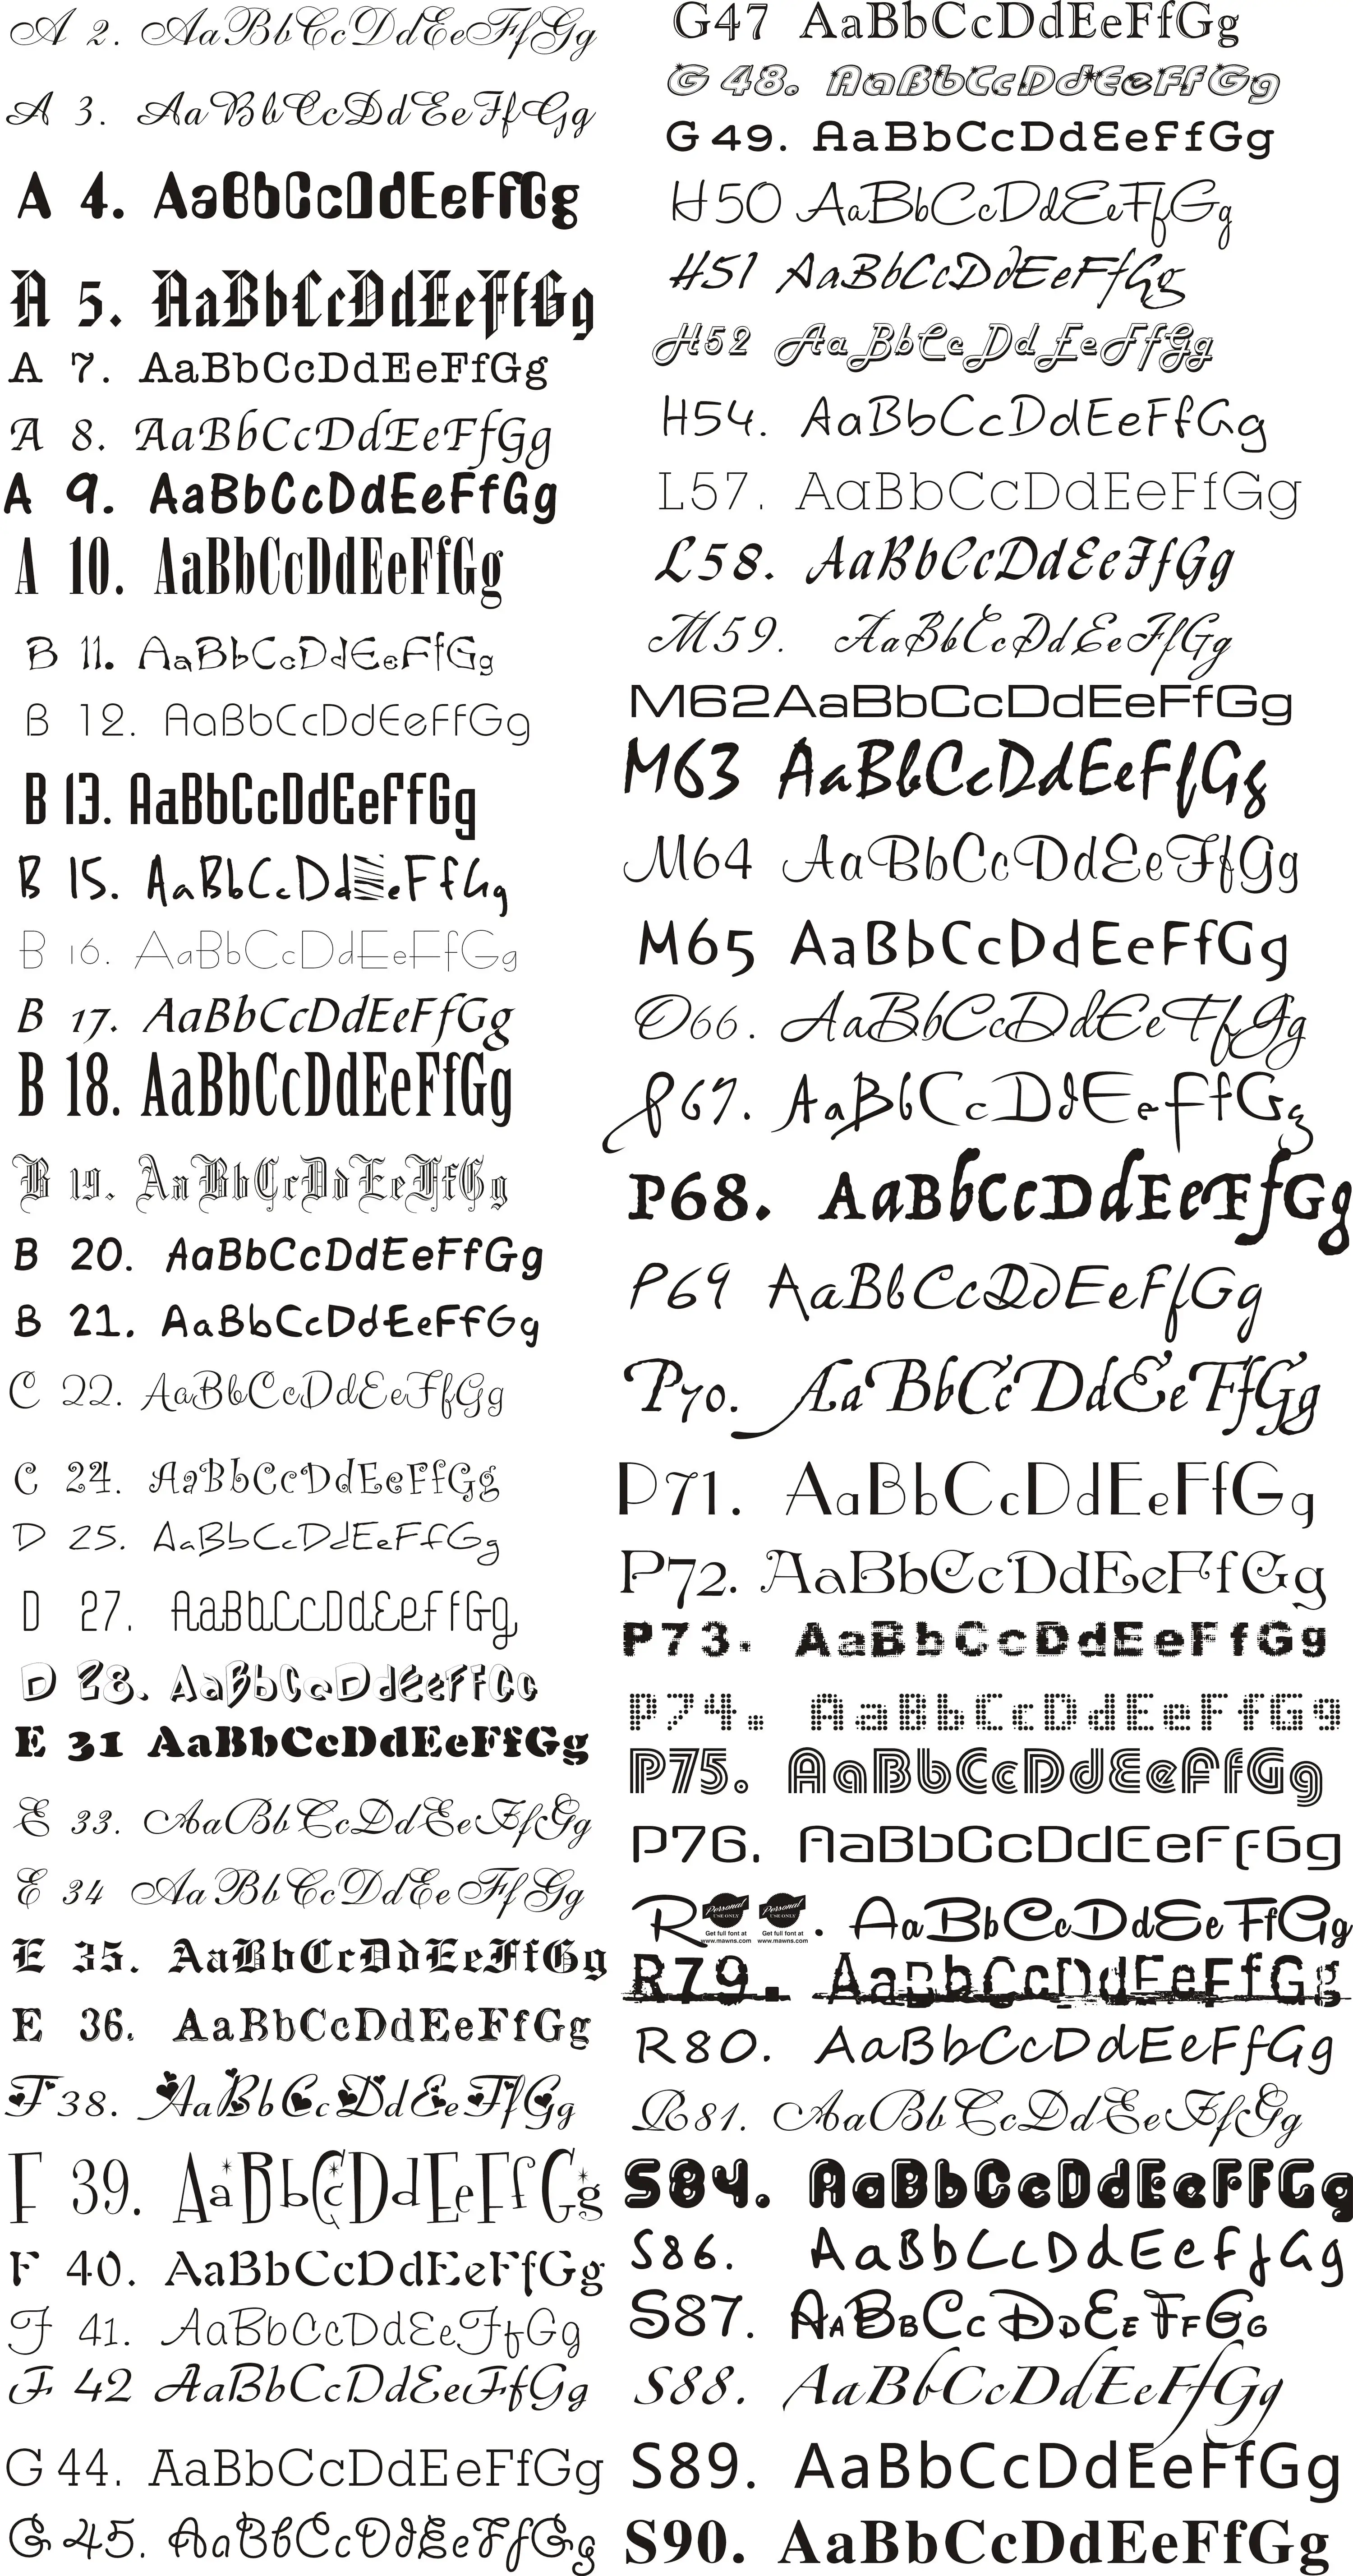 A 2. AaBbCcDdEeFfGg
A 3. AaBbCcDdEeFfGg
A 4. AaBbCcDdEeFfGg
A 5. AaBbCcDdEeFfGg
A 7. AaBbCcDdEeFfGg
A 8. AaBbCcDdEeFfGg
A 9. AaBbCcDdEeFfGg
A 10. AaBbCcDdEeFfGg
B 11. AaBbCcDdEeFfGg
B 12. AaBbCcDdEeFfGg
B 13. AaBbCcDdEeFfGg
B 15. AaBbCcDd eFfGg
B 16. AaBbCcDdEeFfGg
B 17. AaBbCcDdEeFfGg
B 18. AaBbCcDdEeFfGg
B 19. AaBbCcDdEeFfGg
B 20. AaBbCcDdEeFfGg
B 21. AaBbCcDdEeFfGg
C 22. AaBbCcDdEeFfGg
C 24. AaBbCcDdEeFfGg
D 25. AaBbCcDdEeFfGg
D 27. AaBbCcDdEeFfGg
D 28. AaBbCcDdEeFfGg
E 31 AaBbCcDdEeFfGg
E 33. AaBbCcDdEeFfGg
E 34 AaBbCcDdEeFfGg
E 35. AaBbCcDdEeFfGg
E 36. AaBbCcDdEeFfGg
F 38. AaBbCcDdEeFfGg
F 39. AaBbCcDdEeFfGg
F 40. AaBbCcDdEeFfGg
F 41. AaBbCcDdEeFfGg
F 42 AaBbCcDdEeFfGg
G 44. AaBbCcDdEeFfGg
G 45. AaBbCcDdEeFfGg
G47 AaBbCcDdEeFfGg
G 48. AaBbCcDdEeFfGg
G 49. AaBbCcDdEeFfGg
H50 AaBbCcDdEeFfGg
H51 AaBbCcDdEeFfGg
H52 AaBbCcDdEeFfGg
H54. AaBbCcDdEeFfGg
L57. AaBbCcDdEeFfGg
L58. AaBbCcDdEeFfGg
M59. AaBbCcDdEeFfGg
M62AaBbCcDdEeFfGg
M63 AaBbCcDdEeFfGg
M64 AaBbCcDdEeFfGg
M65 AaBbCcDdEeFfGg
O66. AaBbCcDdEeFfGg
P67. AaBbCcDdEeFfGg
P68. AaBbCcDdEeFfGg
P69 AaBbCcDdEeFfGg
P70. AaBbCcDdEeFfGg
P71. AaBbCcDdEeFfGg
P72. AaBbCcDdEeFfGg
P73. AaBbCcDdEeFfGg
P74. AaBbCcDdEeFfGg
P75. AaBbCcDdEeFfGg
P76. AaBbCcDdEeFfGg
R . AaBbCcDdEeFfGg
Personal Personal
USE ONLY USE ONLY
Get full font at Get full font at
www.mawns.com www.mawns.com
R79. AaBbCcDdEeFfGg
R80. AaBbCcDdEeFfGg
R81. AaBbCcDdEeFfGg
S84. AaBbCcDdEeFfGg
S86. AaBbCcDdEeFfGg
S87. AaBbCcDdEeFfGg
S88. AaBbCcDdEeFfGg
S89. AaBbCcDdEeFfGg
S90. AaBbCcDdEeFfGg